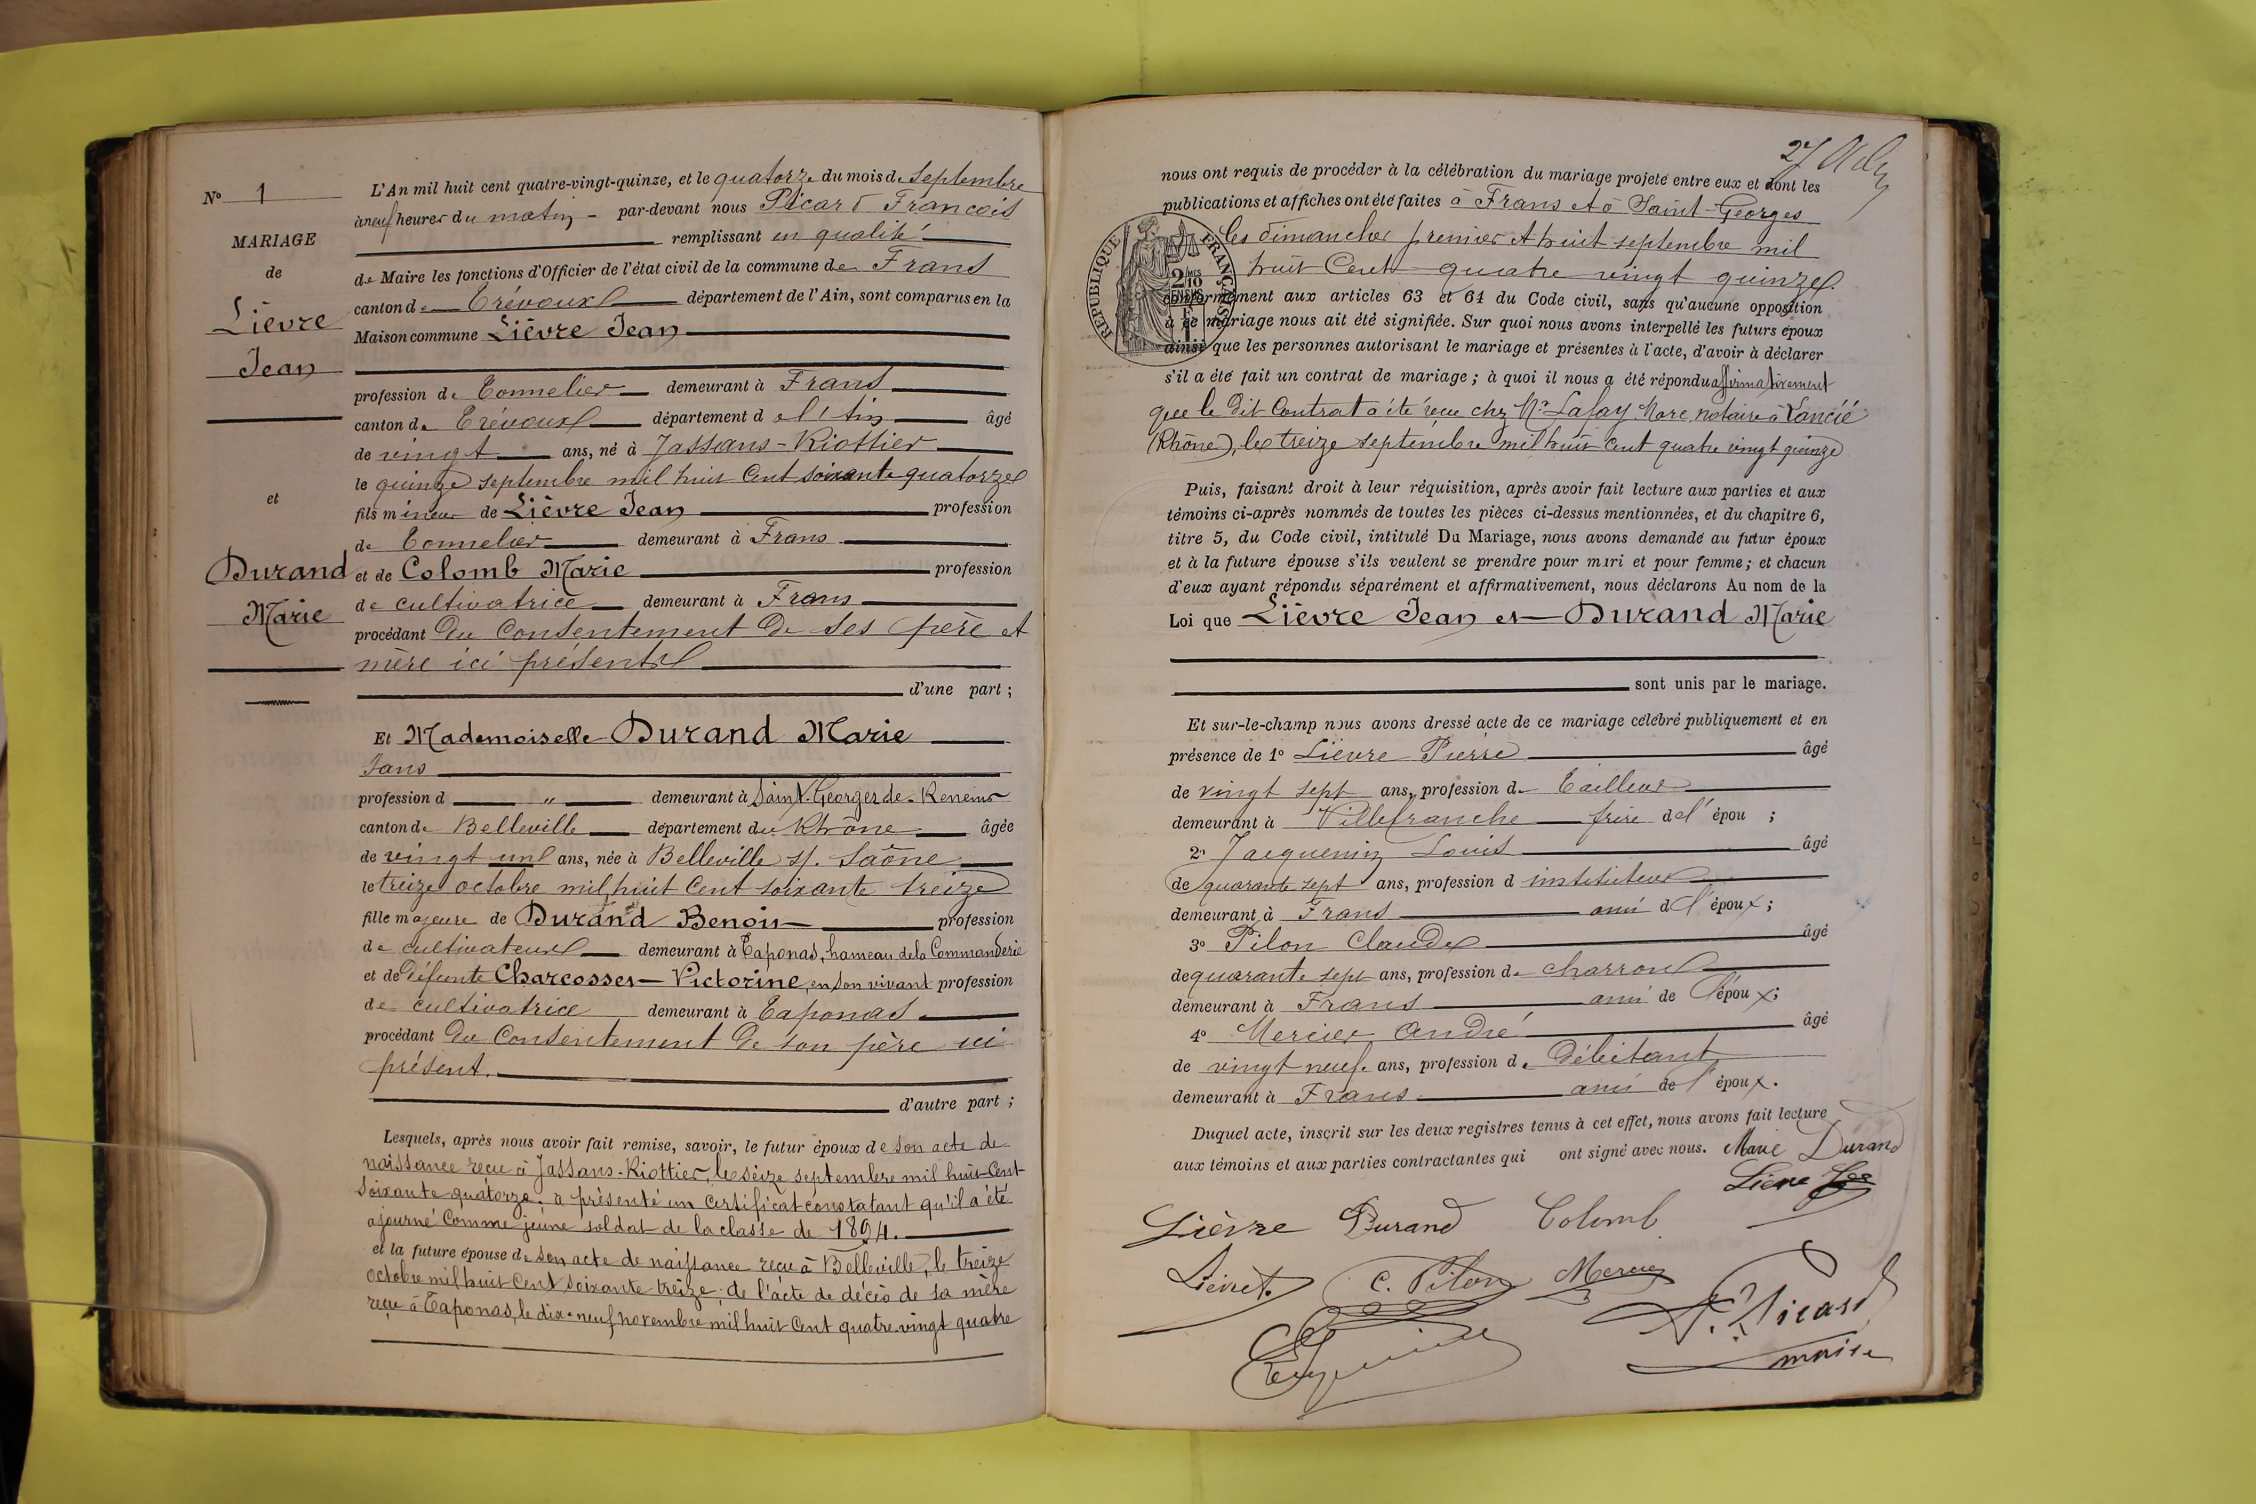 N° 1
MARIAGE
de
Lièvre
Jean
et
Durand
Marie
L'An mil huit cent quatre-vingt-quinze, et le quatorze du mois de septembre
à neuf heures du matin - par-devant nous Picard François
remplissant en qualité
de Maire les fonctions d'Officier de l'état civil de la commune de Frans
canton de Trévoux département de l'Ain, sont comparus en la
Maison commune Lièvre Jean
profession de Tonnelier demeurant à Frans
canton de Trévoux département de l'Ain âgé
de vingt ans, né à Jassans-Riottier
le quinze septembre mil huit cent soixante quatorze
fils mineur de Lièvre Jean profession
de Tonnelier demeurant à Frans
et de Colomb Marie profession
de cultivatrice demeurant à Frans
procédant du consentement de ses père et
mère ici présents
d'une part ;
Et Mademoiselle Durand Marie
sans
profession d " demeurant à Saint-Georges de-Reneins
canton de Belleville département du Rhône âgée
de vingt un ans, née à Belleville s/. Saône
le treize octobre mil huit cent soixante treize
fille majeure de Durand Benoit profession
de cultivateur demeurant à Taponas, hameau de la Commanderie
et de défunte Charcosset Victorine, en son vivant profession
de cultivatrice demeurant à Taponas
procédant du consentement de son père ici
présent.
d'autre part ;
Lesquels, après nous avoir fait remise, savoir, le futur époux de son acte de
naissance reçu à Jassans-Riottier, le seize septembre mil huit cent
soixante quatorze. a présenté un certificat constatant qu'il a été
ajourné comme jeune soldat de la classe de 1894.
et la future épouse de son acte de naissance reçu à Belleville, le treize
octobre mil huit cent soixante treize ; de l'acte de décès de sa mère
reçu à Taponas, le dix-neuf novembre mil huit cent quatre-vingt quatre
nous ont requis de procéder à la célébration du mariage projeté entre eux et dont les
publications et affiches ont été faites à Frans et à Saint-Georges
les dimanches premier et huit septembre mil
huit cent quatre vingt quinze
RÉPUBLIQUE FRANÇAISE
2 MES
10
EN SUS
conformément aux articles 63 et 64 du Code civil, sans qu'aucune opposition
à ce mariage nous ait été signifiée. Sur quoi nous avons interpellé les futurs époux
ainsi que les personnes autorisant le mariage et présentes à l'acte, d'avoir à déclarer
s'il a été fait un contrat de mariage ; à quoi il nous a été répondu affirmativement
que le dit contrat a été reçu chez Mr Lafay Marc notaire à Lancié
(Rhône), le treize septembre mil huit cent quatre vingt quinze
Puis, faisant droit à leur réquisition, après avoir fait lecture aux parties et aux
témoins ci-après nommés de toutes les pièces ci-dessus mentionnées, et du chapitre 6,
titre 5, du Code civil, intitulé Du Mariage, nous avons demandé au futur époux
et à la future épouse s'ils veulent se prendre pour mari et pour femme ; et chacun
d'eux ayant répondu séparément et affirmativement, nous déclarons Au nom de la
Loi que Lièvre Jean et Durand Marie
sont unis par le mariage.
Et sur-le-champ nous avons dressé acte de ce mariage célébré publiquement et en
présence de 1° Lièvre Pierre âgé
de vingt sept ans, profession de Tailleur
demeurant à Villefranche frère de l'épou ;
2° Jacquemin Louis âgé
de quarante sept ans, profession d instituteur
demeurant à Frans ami de l'époux ;
3° Pilon Claude âgé
de quarante sept ans, profession de charron
demeurant à Frans ami de l'époux ;
4° Mercier André âgé
de vingt neuf ans, profession de Débitant
demeurant à Frans ami de l'époux.
Duquel acte, inscrit sur les deux registres tenus à cet effet, nous avons fait lecture
aux témoins et aux parties contractantes qui ont signé avec nous. Marie Durand
Lièvre
Lièvre Durand Colomb
Lièvre C. Pilon Mercier
F. Picard
maire